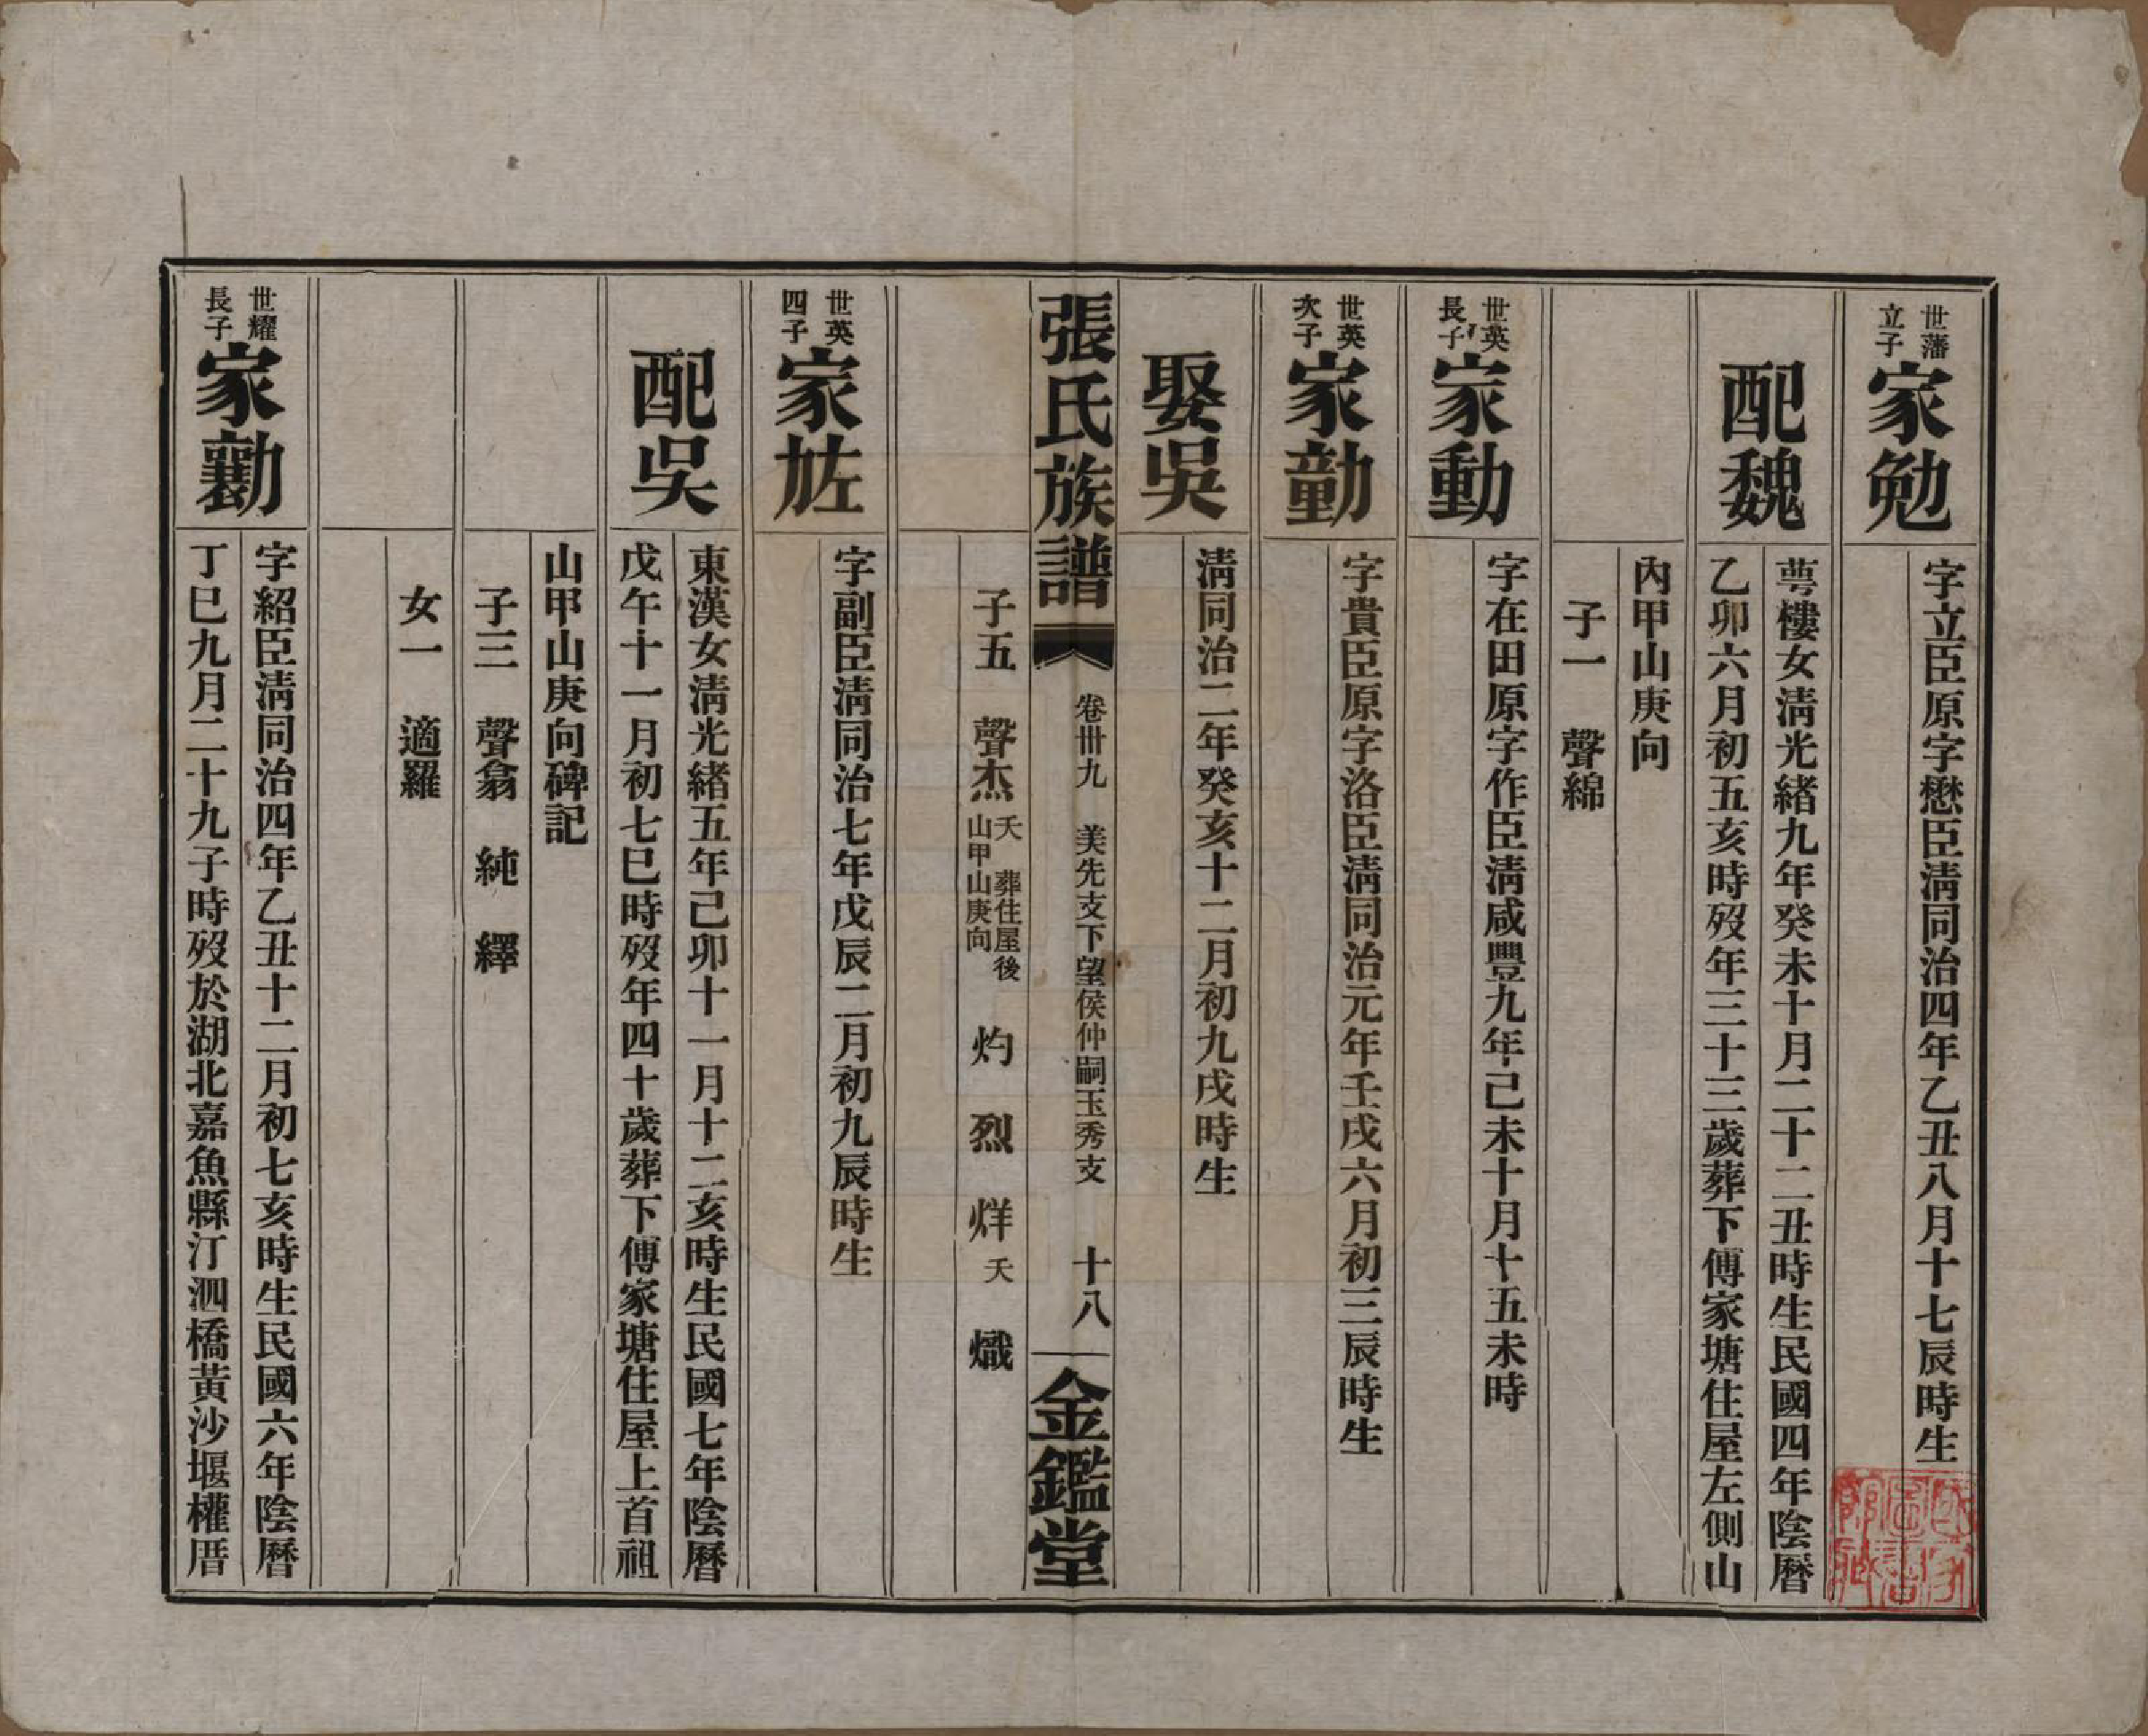 世藩
立子
家勉
字立臣原字懋臣淸同治四年乙丑八月十七辰時生
配魏
萼樓女淸光緖九年癸未十月二十二丑時生民國四年陰曆
乙卯六月初五亥時歿年三十三歲葬下傅家塘住屋左側山
內甲山庚向
子一　聲綿
世英
長子
家動
字在田原字作臣淸咸豐九年己未十月十五未時
世英
次子
家勭
字貴臣原字洛臣淸同治元年壬戌六月初三辰時生
娶吳
淸同治二年癸亥十二月初九戌時生
張氏族譜
卷卅九　美先支下望侯仲嗣玉秀支
十八
金鑑堂
子五　聲杰
夭　葬住屋後
山甲山庚向
灼　烈　烊夭　熾
世英
四子
家𠡍
字副臣淸同治七年戊辰二月初九辰時生
配吳
東漢女淸光緖五年己卯十一月十二亥時生民國七年陰曆
戊午十一月初七巳時歿年四十歲葬下傅家塘住屋上首祖
山甲山庚向碑記
子三　聲翕　純　繹
女一　適羅
世耀
長子
家勷
字紹臣淸同治四年乙丑十二月初七亥時生民國六年陰曆
丁巳九月二十九子時歿於湖北嘉魚縣汀泗橋黃沙堰權厝